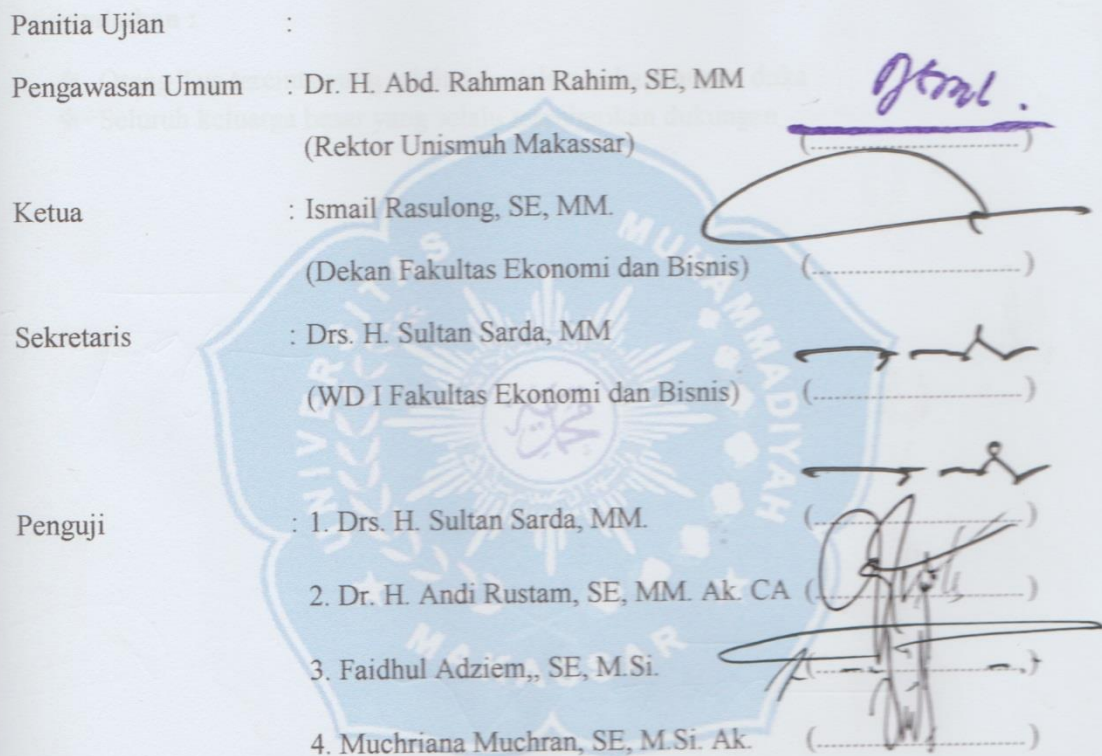 Panitia Ujian :
Pengawasan Umum : Dr. H. Abd. Rahman Rahim, SE, MM
(Rektor Unismuh Makassar) (..............................)
Ketua : Ismail Rasulong, SE, MM.
(Dekan Fakultas Ekonomi dan Bisnis) (..............................)
Sekretaris : Drs. H. Sultan Sarda, MM
(WD I Fakultas Ekonomi dan Bisnis) (..............................)
Penguji : 1. Drs. H. Sultan Sarda, MM. (..............................)
2. Dr. H. Andi Rustam, SE, MM. Ak. CA (..............................)
3. Faidhul Adziem,, SE, M.Si. (..............................)
4. Muchriana Muchran, SE, M.Si. Ak. (..............................)
UNIVERSITAS MUHAMMADIYAH
MAKASSAR